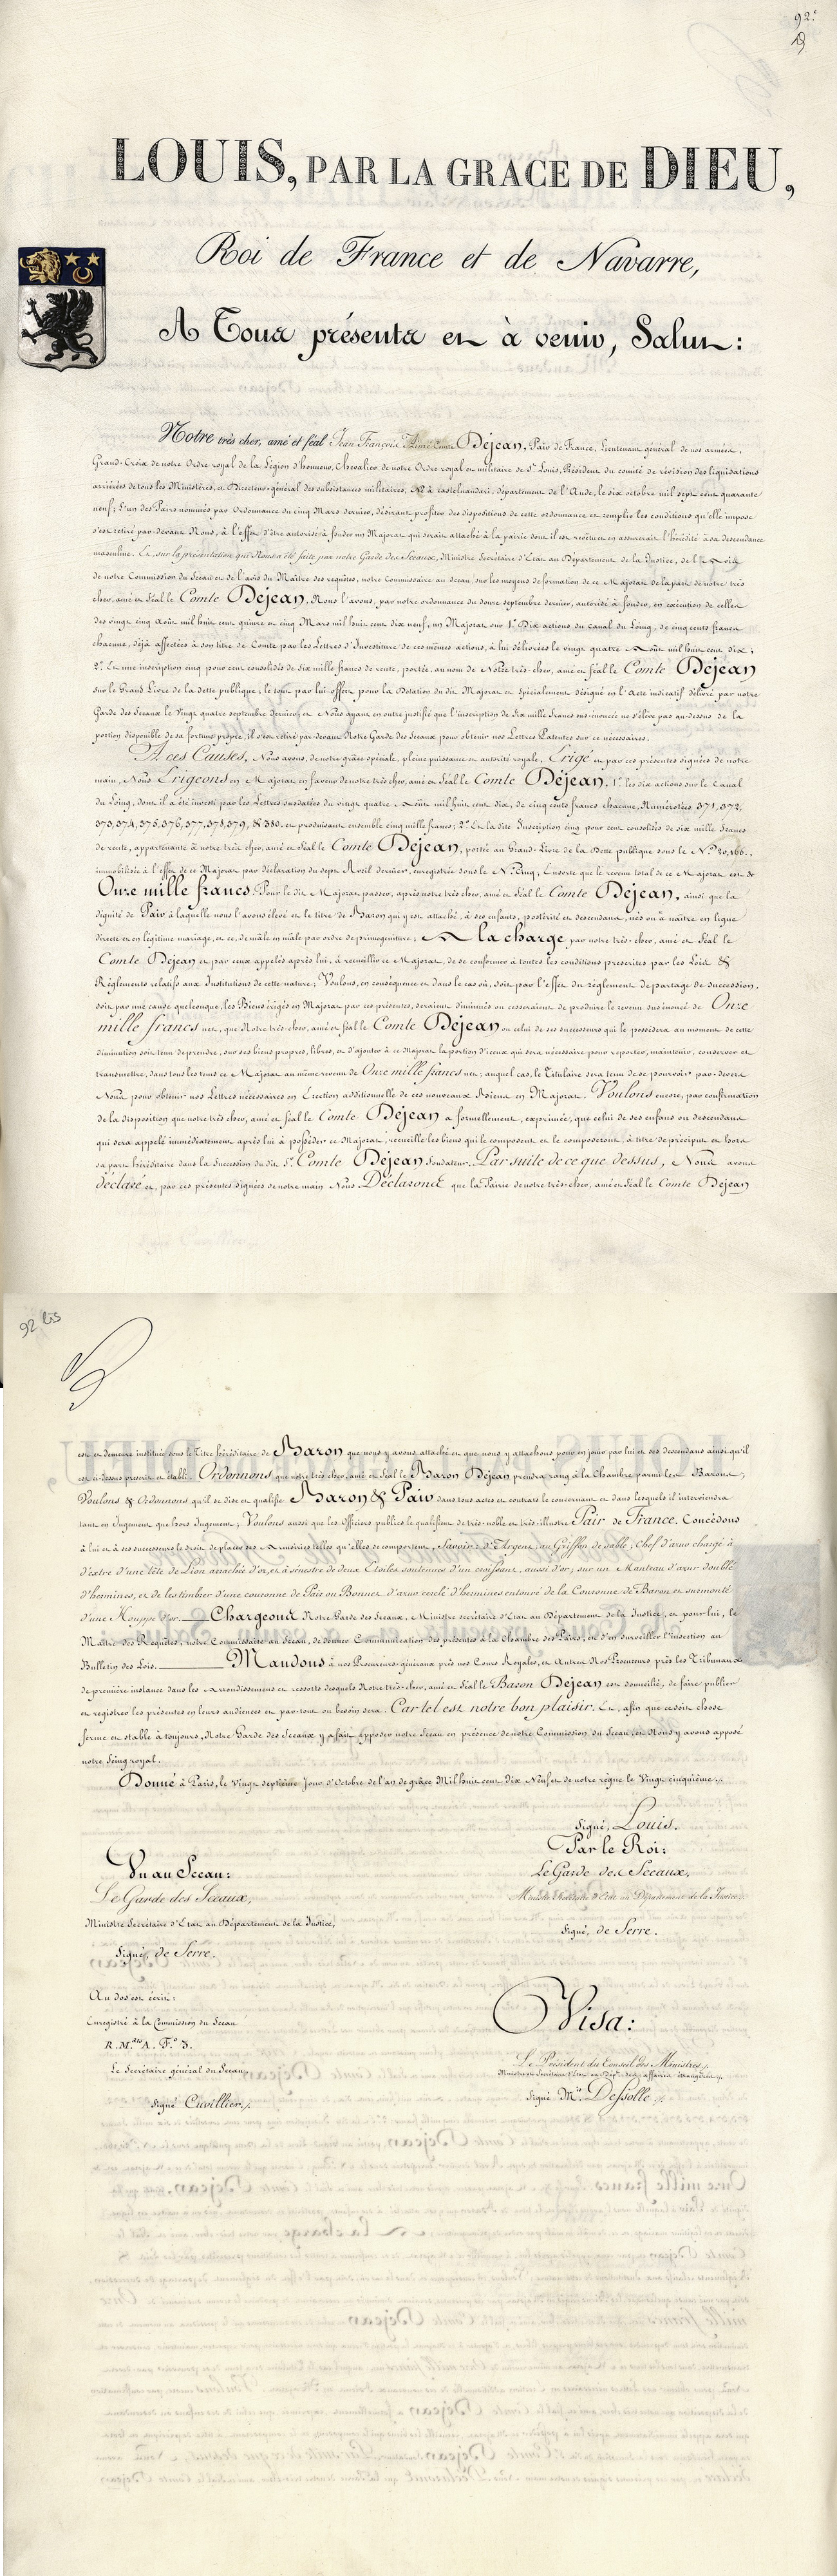 92.e
LOUIS, PAR LA GRACE DE DIEU,
Roi de France et de Navarre,
A Tous présents et à venir, Salut:
Notre très cher, amé et féal Jean François Aimé Dejean, Pair de France, Lieutenant général de nos armées,
Grand-Croix de notre Ordre royal de la Légion d'honneur, Chevalier de notre Ordre royal et militaire de St Louis, Président du comité de révision des liquidations
arriérées de tous les Ministères, et Directeur-général des subsistances militaires, Né à castelnaudari, département de l'Aude, le six octobre mil sept cent quarante
neuf; L'un des Pairs nommés par Ordonnance du Cinq Mars dernier, désirant profiter des dispositions de cette ordonnance et remplir les conditions qu'elle impose
s'est retiré par-devant Nous, à l'effet d'être autorisé à fonder un Majorat qui serait attaché à la pairie dont il est revêtu et en assurerait l'hérédité à sa descendance
masculine. Et, sur la présentation qui Nous a été faite par notre Garde des Sceaux, Ministre Secrétaire d'Etat au Département de la Justice, de l'Avis
de notre Commission du Sceau et de l'avis du Maître des requêtes, notre Commissaire au Sceau, sur les moyens de formation de ce Majorat de la part de notre très
cher, amé et féal le Comte Dejean, Nous l'avons, par notre ordonnance du douze septembre dernier, autorisé à fonder, en exécution de celles
des vingt cinq Août mil huit cent quinze et cinq Mars mil huit cent dix neuf, un Majorat sur 1.° Dix actions du Canal du Loing, de cinq cents francs
chacune, déjà affectées à son titre de Comte par les Lettres d'Investiture de ces mêmes actions, à lui délivrées le vingt quatre Août mil huit cent dix;
2.° Et une inscription cinq pour cent consolidés de six mille francs de rente, portée, au nom de Notre très-cher, amé et féal le Comte Dejean
sur le Grand Livre de la dette publique; le tout par lui offert pour la Dotation du dit Majorat et Spécialement désigné en l'Acte indicatif délivré par notre
Garde des Sceaux le Vingt quatre septembre dernier; et Nous ayant en outre justifié que l'inscription de Six mille francs sus-énoncée ne s'élève pas au-dessus de la
portion disponible de sa fortune propre, il s'est retiré par-devant Notre Garde des Sceaux pour obtenir nos Lettres Patentes sur ce nécessaires.
A ces Causes, Nous avons, de notre grâce spéciale, pleine puissance et autorité royale, Erigé et par ces présentes signées de notre
main, Nous Erigeons en Majorat en faveur de notre très cher, amé et féal le Comte Dejean, 1.° les dix actions sur le Canal
du Loing, dont il a été investi par les Lettres susdatées du vingt quatre Août mil huit cent dix, de cinq cents francs chacune, Numérotées 371, 372,
373, 374, 375, 376, 377, 378, 379, & 380. et produisant ensemble cinq mille francs; 2.° Et la dite Inscription cinq pour cent consolidés de six mille francs
de rente, appartenante à notre très cher, amé et féal le Comte Dejean, portée au Grand-Livre de la Dette publique sous le N.° 20,166.,
immobilisée à l'effet de ce Majorat par déclaration du sept Avril dernier, enregistrée sous le N.° Cinq; Ensorte que le revenu total de ce Majorat est de
Onze mille francs. Pour le dit Majorat passer, après notre très cher, amé et féal le Comte Dejean, ainsi que la
dignité de Pair à laquelle nous l'avons élevé et le titre de Baron qui y est attaché, à ses enfants, postérité et descendants, nés ou à naître en ligne
directe et en légitime mariage, et ce, de mâle en mâle par ordre de primogéniture; A la charge par notre très-cher, amé et féal le
Comte Dejean et par ceux appelés après lui, à recueillir ce Majorat, de se conformer à toutes les conditions prescrites par les Loix &
Réglements relatifs aux Institutions de cette nature; Voulons, en conséquence et dans le cas où, soit par l'effet du réglement de partage de succession,
soit par une cause quelconque, les Biens érigés en Majorat par ces présentes, seraient diminués ou cesseraient de produire le revenu sus énoncé de Onze
mille francs net, que Notre très-cher, amé et féal le Comte Dejean ou celui de ses successeurs qui le possédera au moment de cette
diminution soit tenu de prendre, sur ses biens propres, libres, et d'ajouter à ce Majorat la portion d'iceux qui sera nécessaire pour reporter, maintenir, conserver et
transmettre, dans tous les tems ce Majorat au même revenu de Onze mille francs net; auquel cas, le Titulaire sera tenu de se pourvoir par-devers
Nous pour obtenir nos Lettres nécessaires en Erection additionnelle de ces nouveaux Biens en Majorat. Voulons encore, par confirmation
de la disposition que notre très cher, amé et féal le Comte Dejean a formellement exprimée, que celui de ses enfans ou descendans
qui sera appelé immédiatement après lui à posséder ce Majorat, recueille les biens qui le composent et le composeront, à titre de préciput et hors
sa part héréditaire dans la Succession du dit Sr Comte Dejean fondateur. Par suite de ce que dessus, Nous avons
déclaré et, par ces présentes signées de notre main Nous Déclarons que la Pairie de notre très-cher, amé et féal le Comte Dejean
92 bis
est et demeure instituée sous le Titre héréditaire de Baron que nous y avons attaché et que nous y attachons pour en jouir par lui et ses descendans ainsi qu'il
est ci-dessus prescrit et établi. Ordonnons que notre très cher, amé et féal le Baron Dejean prendra rang à la Chambre parmi les Barons;
Voulons & Ordonnons qu'il se dise et qualifie Baron & Pair dans tous actes et contrats le concernant et dans lesquels il interviendra
tant en Jugement que hors Jugement; Voulons aussi que les Officiers publics le qualifient de très-noble et très-illustre Pair de France. Concédons
à lui et à ses successeurs le droit de placer ses Armoiries telles qu'elles se comportent, Savoir: d'Argent, au Griffon de sable; Chef d'azur chargé à
d'extre d'une tête de Lion arrachée d'or, et à sénestre de deux Etoiles soutenues d'un croissant, aussi d'or; sur un Manteau d'azur doublé
d'hermines, et de les timbrer d'une couronne de Pair ou Bonnet d'azur cerclé d'hermines entouré de la Couronne de Baron et surmonté
d'une Houppe d'or. Chargeons Notre Garde des Sceaux, Ministre secrétaire d'Etat au Département de la Justice, et pour lui, le
Maître des Requêtes, notre Commissaire au Sceau, de donner Communication des présentes à la Chambre des Pairs, et d'en surveiller l'insertion au
Bulletin des Lois. Mandons à nos Procureurs-généraux près nos Cours Royales, et Autres Nos Procureurs près les Tribunaux
de première instance dans les Arrondissemens et ressorts desquels Notre très-cher, amé et féal le Baron Dejean est domicilié, de faire publier
et registrer les présentes en leurs audiences et par-tout où besoin sera. Car tel est notre bon plaisir. Et, afin que ce soit chose
ferme et stable à toujours, Notre Garde des Sceaux y a fait apposer notre Sceau en présence de notre Commission du Sceau, et Nous y avons apposé
notre Seing royal.
Donné à Paris, le Vingt septième Jour d'Octobre de l'an de grâce Mil huit cent Dix Neuf et de notre règne le Vingt cinquième.
Signé, Louis.
Par le Roi:
Le Garde des Sceaux,
Ministre Secrétaire d'Etat au Département de la Justice,
Signé, de Serre.
Vu au Sceau:
Le Garde des Sceaux,
Ministre Secrétaire d'Etat au Département de la Justice,
Signé, de Serre.
Au dos est écrit:
Enregistré à la Commission du Sceau
R. M.ats A. F.° 3.
Le Secrétaire général du Sceau,
Signé Cuvillier.
Visa:
Le Président du Conseil des Ministres,
Ministre Secrétaire d'Etat au Dépt des affaires étrangères,
Signé M.is Dessolle.